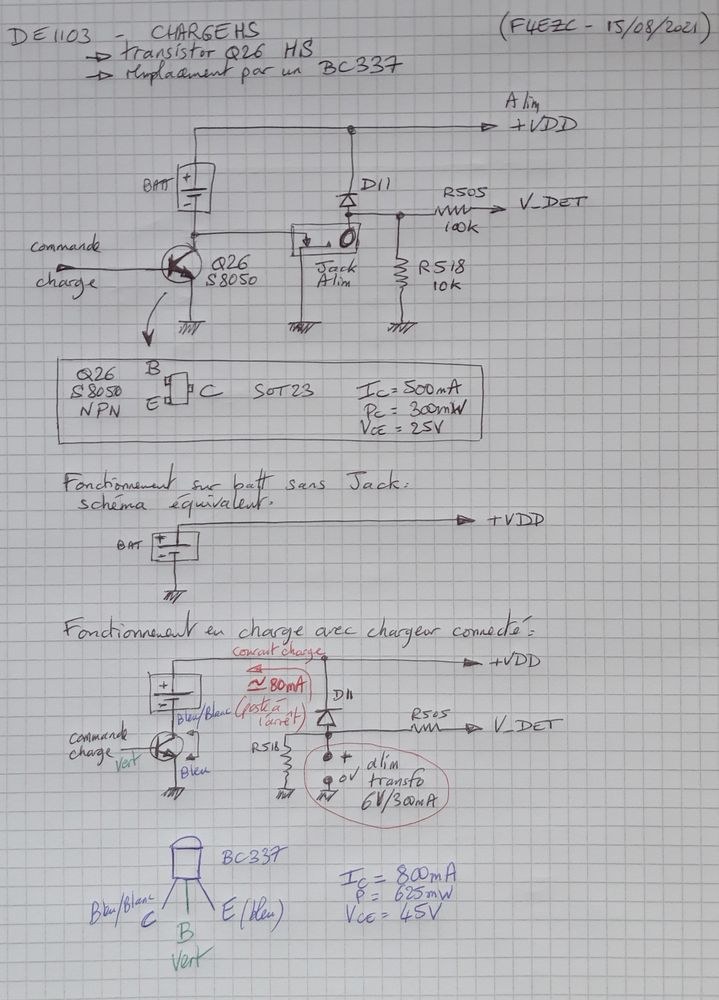 DE1103 - CHARGE HS (F4EZC - 15/08/2021)
→ transistor Q26 HS
→ remplacement par un BC337
Alim
+VDD
BATT
+
-
D11
R505
100k
V_DET
commande
charge
Q26
S8050
Jack
Alim
R518
10k
Q26
S8050
NPN
B
E
C
SOT23
Ic = 500mA
Pc = 300mW
VCE = 25V
Fonctionnement sur batt sans Jack:
schéma équivalent.
BAT
+
-
+VDD
Fonctionnement en charge avec chargeur connecté:
courant charge
≃ 80mA
(poste à
l'arrêt)
+VDD
+
-
D11
Bleu/Blanc
R505
V_DET
commande
charge
Vert
Bleu
R518
+
0V
alim
transfo
6V/300mA
BC337
Bleu/Blanc
C
B
Vert
E (bleu)
Ic = 800mA
P = 625mW
VCE = 45V